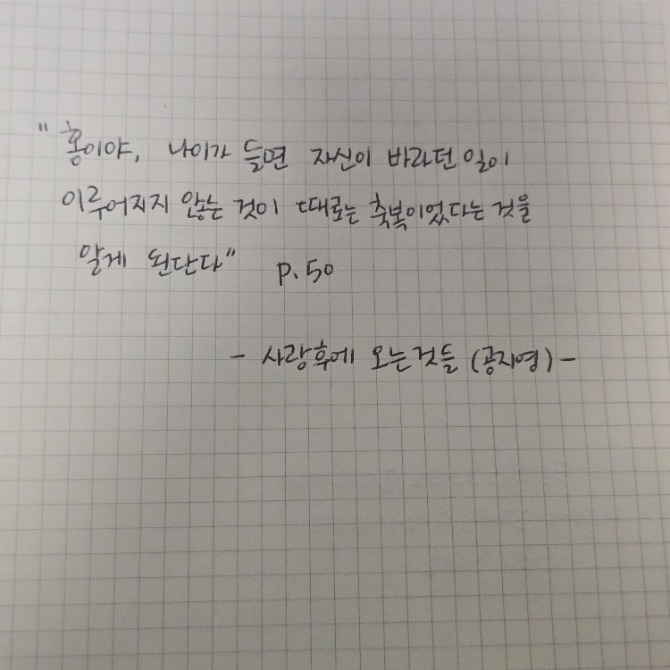 " 홍이야, 나이가 들면 자신이 바라던 일이
이루어지지 않는 것이 때로는 축복이었다는 것을
알게 된단다" P.50
- 사랑후에 오는것들 (공지영) -